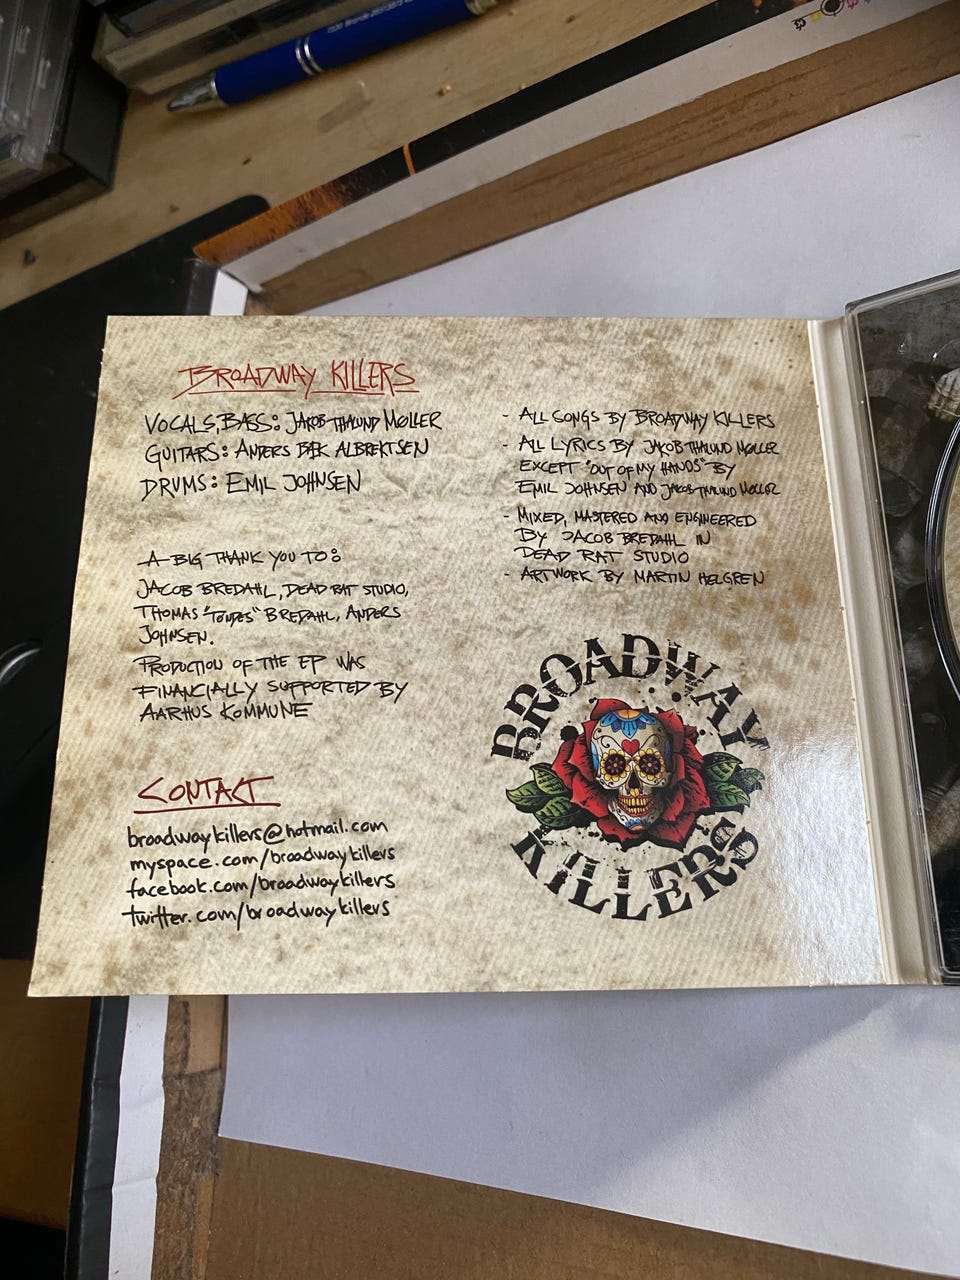 BROADWAY KILLERS
VOCALS, BASS: JAKOB THALUND MØLLER
GUITARS: ANDERS BÆK ALBREKTSEN
DRUMS: EMIL JOHNSEN
A BIG THANK YOU TO:
JACOB BREDAHL, DEAD RAT STUDIO,
THOMAS "TONDES" BREDAHL, ANDERS
JOHNSEN.
PRODUCTION OF THE EP WAS
FINANCIALLY SUPPORTED BY
AARHUS KOMMUNE
CONTACT
broadwaykillers@hotmail.com
myspace.com/broadwaykillers
facebook.com/broadwaykillers
twitter.com/broadwaykillers
- ALL SONGS BY BROADWAY KILLERS
- ALL LYRICS BY JAKOB THALUND MØLLER
EXCEPT "OUT OF MY HANDS" BY
EMIL JOHNSEN AND JAKOB THALUND MØLLER
- MIXED, MASTERED AND ENGINEERED
BY JACOB BREDAHL IN
DEAD RAT STUDIO
- ARTWORK BY MARTIN HELGREN
BROADWAY
KILLERS